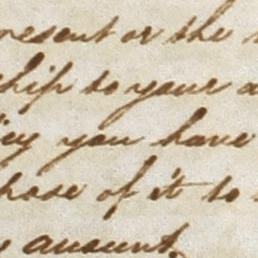 present or the
ship to your a
ey you have
hose of it to
amount.